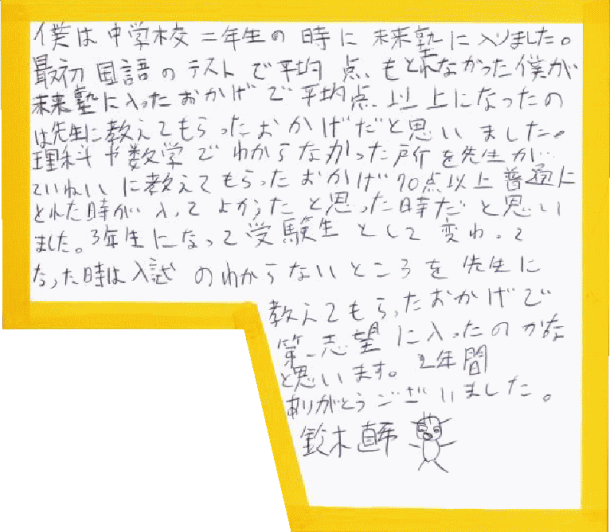 僕は中学校二年生の時に未来塾に入りました。
最初国語のテストで平均点もとれなかった僕が
未来塾に入ったおかげで平均点以上になったの
は先生に教えてもらったおかげだと思いました。
理科や数学でわからなかった所を先生が
ていねいに教えてもらったおかげ70点以上普通に
とれた時が入ってよかったと思った時だと思い
ました。3年生になって受験生として変わって
なった時は入試のわからないところを先生に
教えてもらったおかげで
第一志望に入ったのかな
と思います。2年間
ありがとうございました。
鈴木直希